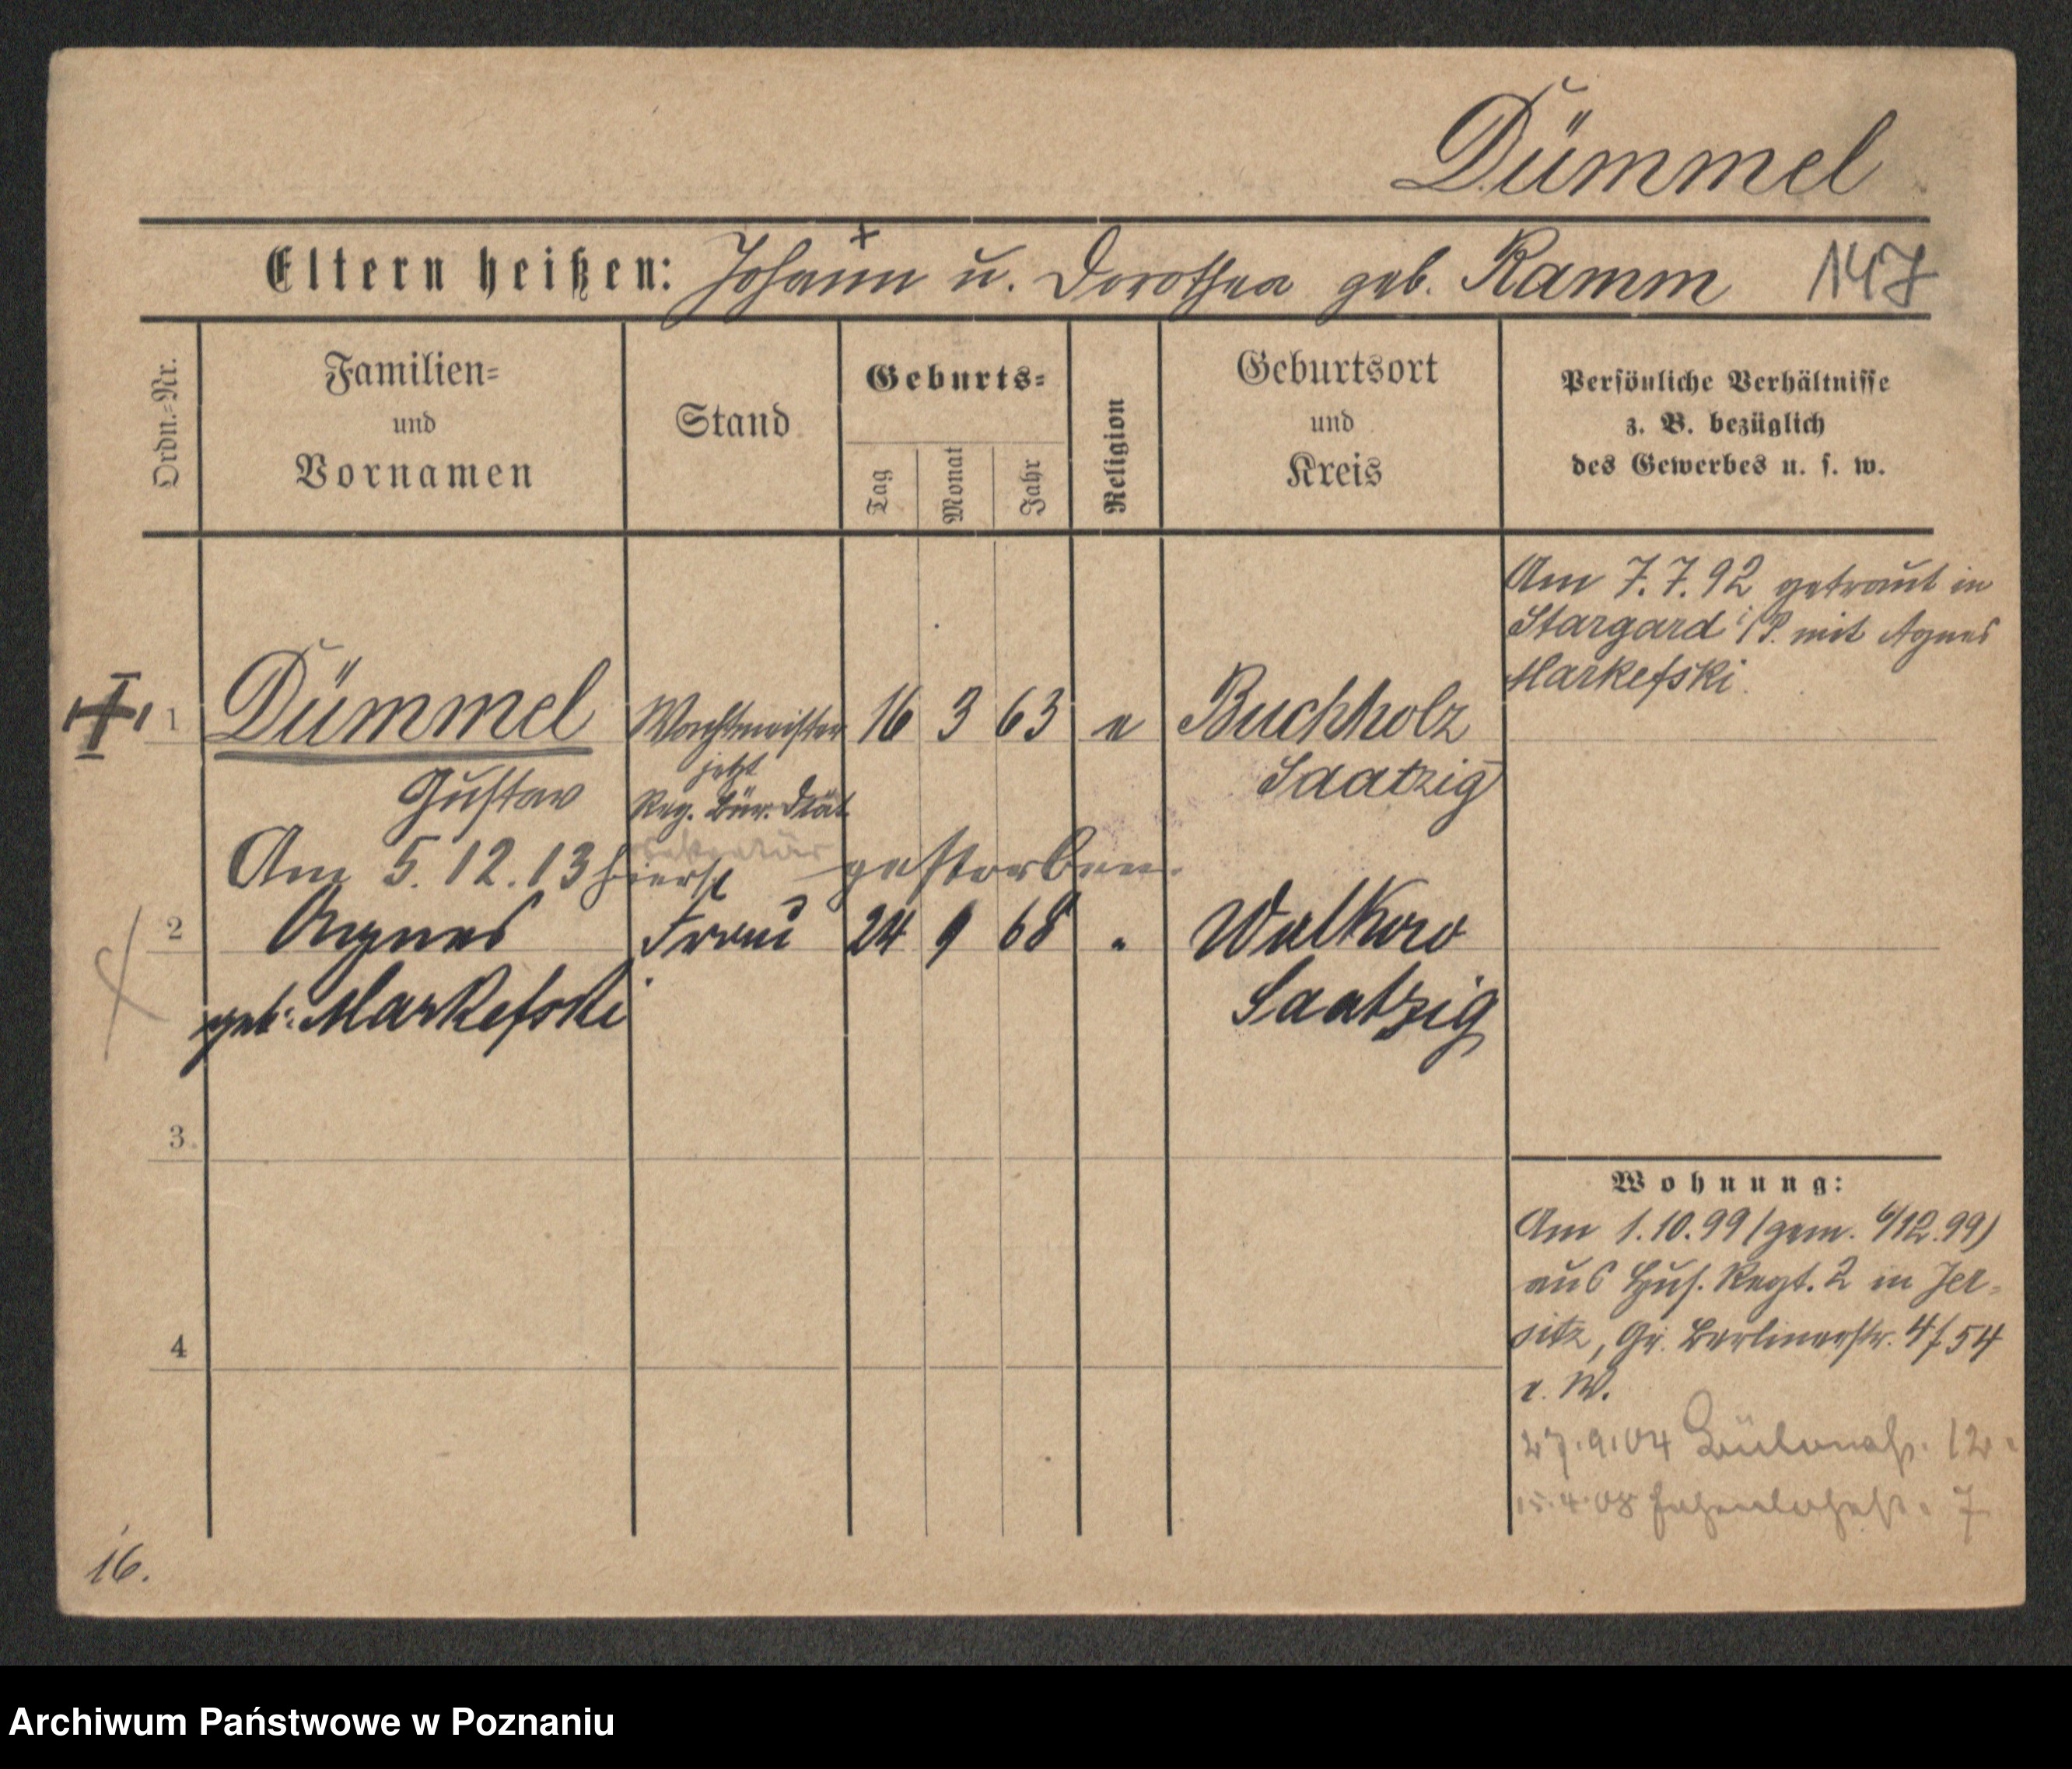 Dümmel
Eltern heißen: Johann u. Dorothea geb. Ramm 147
Ordn.=Nr.
Familien=
und
Vornamen
Stand
Geburts=
Tag
Monat
Jahr
Religion
Geburtsort
und
Kreis
Persönliche Verhältnisse
z. B. bezüglich
des Gewerbes u. s. w.
Am 7.7.92 getraut in
Stargard i/P. mit Agnes
Markefski.
1 Dümmel Wachtmeister 16 3 63 e Buchholz
jetzt
Saatzig
Gustav Reg. Bür. Diät.
Sekretär
Am 5.12.13 hierst gestorben.
2 Agnes Frau 24 9 68 " Walkow
geb. Markefski Saatzig
3
4
Wohnung:
Am 1.10.99 (gem. 6/12.99)
aus Hus. Regt. 2 in Jer-
sitz, Gr. Berlinerstr. 4/54
e. W.
27.9.04 Bülowstr. 12
15.4.08 Hohenlohestr. 7
16.
Archiwum Państwowe w Poznaniu